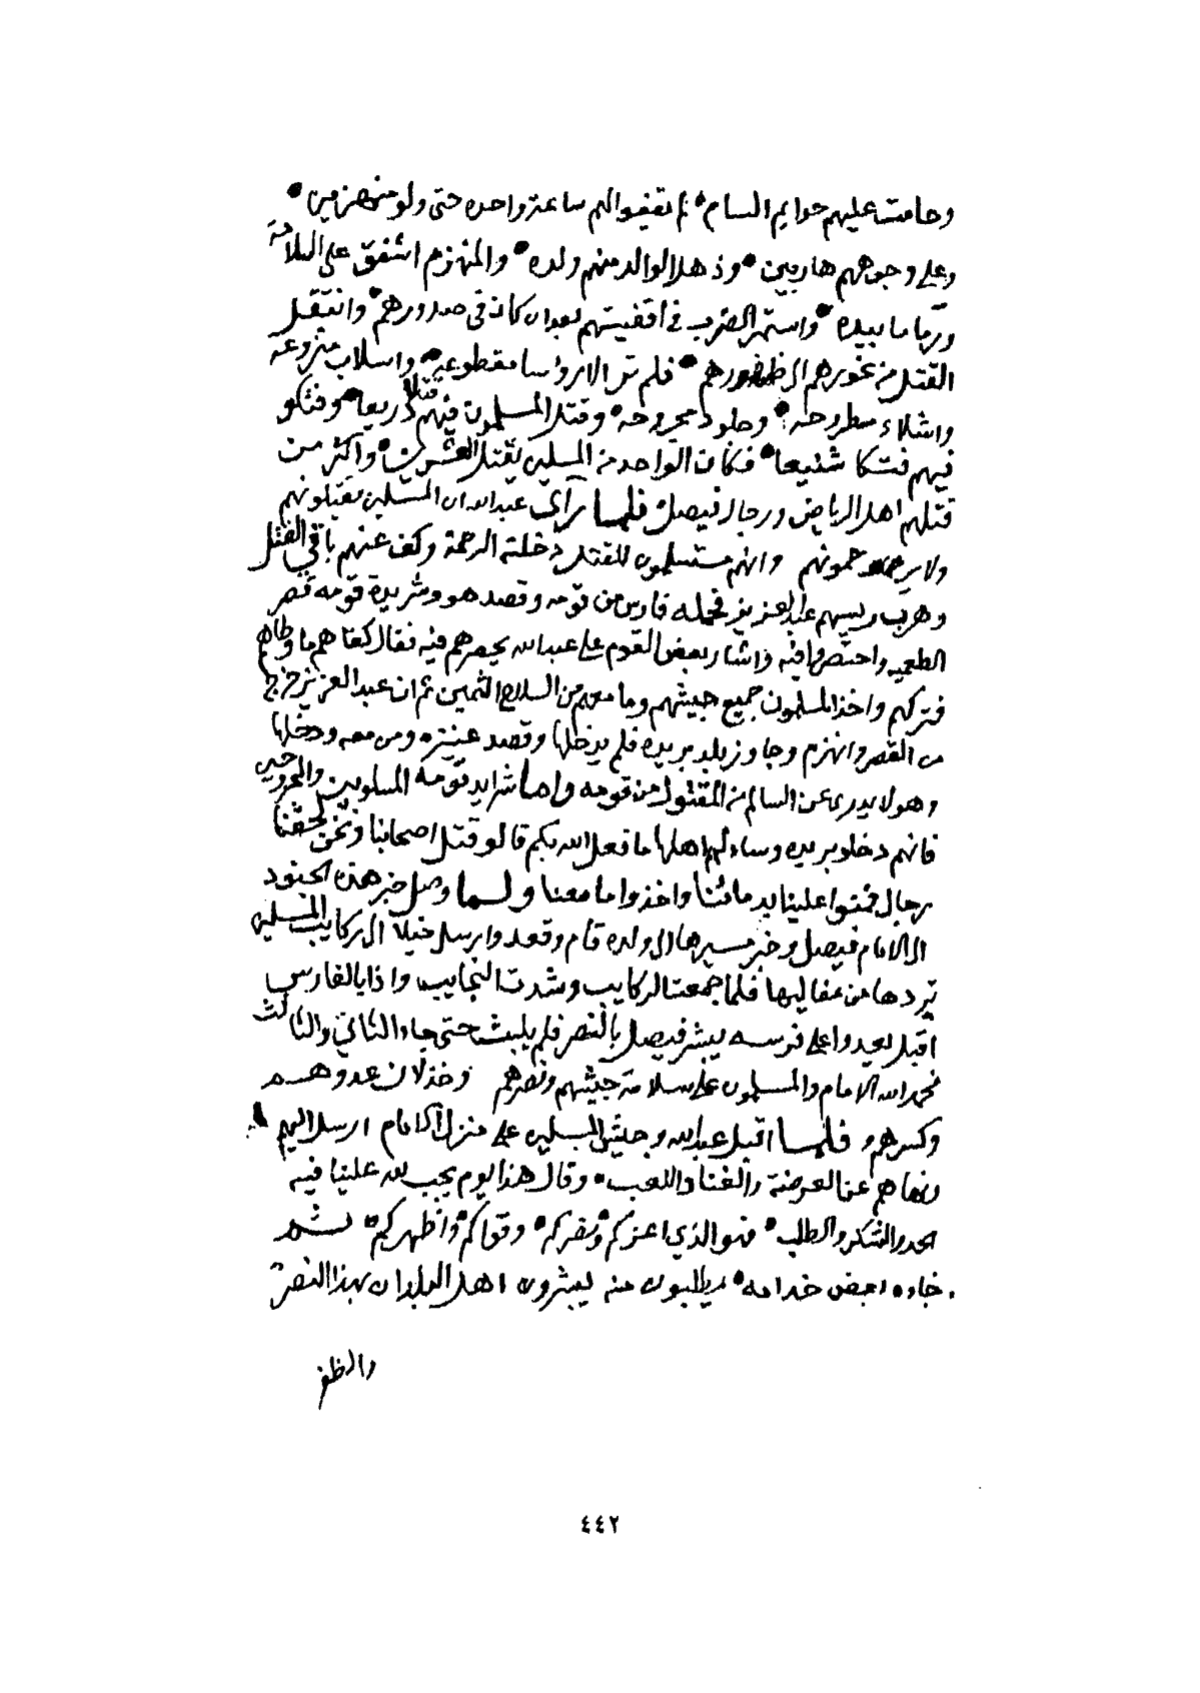 وحامت عليهم حوايم السام • لم يقفوا لهم ساعة واحده حتى ولو منهزمين •
وعلى وجوههم هاربين • وذهل الوالد منهم ولده • والمنهزم اشفق على السلامة
ورمّا ما بيده • واستمر الضرب في اقفيتهم بعد ان كان في صدورهم • وانتقل
القتل من نحورهم الى ظهورهم • فلم تر الا رؤسا مقطوعه • واسلاب منزوعه
واشلاء مطروحه • وجلود مجروحه • وقتل المسلمون فيهم قتلا ذريعا • وفتكو
فيهم فتكا شنيعا • فكان الواحد من المسلمين يقتل العشرين • واكثر من
قتلهم اهل الرياض ورجال فيصل فلما رآى عبدالله ان المسلمين يقتلونهم
ولا يرحمونهم وانهم مستسلمون للقتل دخلته الرحمة وكف عنهم باقي القتل
وهرب رييسهم عبد العزيز فحمله فارس من قومه وقصد هو وشريدة قومه قصر
الطعميه واحتصروا فيه واشار بعض القوم على عبدالله يحصرهم فيه فقال كفاهم ما وطاهم
فتركهم واخذ المسلمون جميع جيشهم وما معهم من السلاح الثمين ثم ان عبد العزيز خرج
من القصر وانهزم وجاوز بلد بريده فلم يدخلها وقصد عنيزه ومن معه ودخلها
وهو لا يدري عن السالم من المقتول من قومه واما شرايد قومه المسلوبين والمجروحين
فانهم دخلو بريده وسالهم اهلها ما فعل الله بكم قالو قتل اصحابنا ونحن لحقنا
رجال فمنوا علينا بدمائنا واخذوا ما معنا ولما وصل خبر هذه الجنود
الى الامام فيصل وخبر مسيرها الى ولده قام وقعد وارسل خيلا الى ركايب المسلمين
تردها من مفاليها فلما جمعت الركايب وشدت النجايب واذا بالفارس
اقبل يعدوا على فرسه يبشر فيصل بالنصر فلم يلبث حتى جاء الثاني والثالث
فحمد الله الامام والمسلمون على سلامة جيشهم ونصرهم وخذلان عدوهم
وكسرهم فلما اقبل عبدالله وجيش المسلمين على منزل الامام ارسل اليهم
ونهاهم عن العرضة والغنا واللعب • وقال هذا يوم يجب لله علينا فيه
الحمد والشكر والطلب • فهو الذي اعزكم • ونصركم • وقواكم • واظهركم • ثم
جاءه بعض خدامه • يطلبون منه يبشرون اهل البلدان بهذا النصر
والظفر
٤٤٢